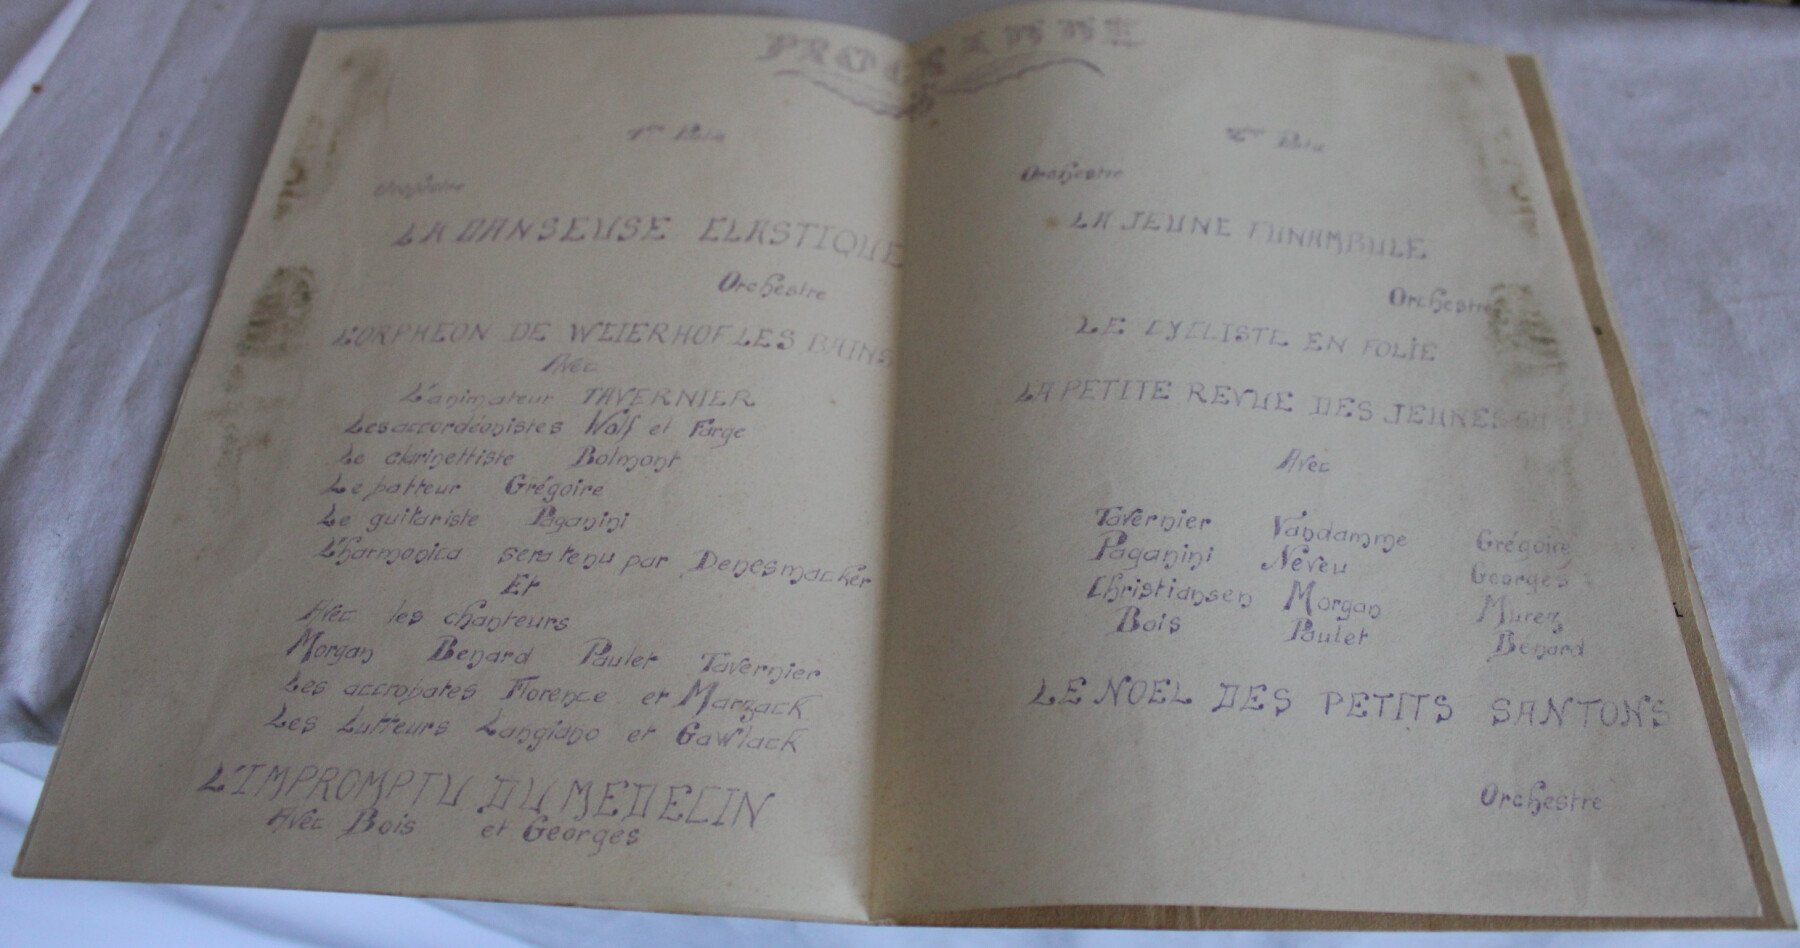 PROGRAMME
1ère Partie
Orchestre
LA DANSEUSE ELASTIQUE
Orchestre
L'ORPHEON DE WEIERHOF.LES BAINS
Avec
L'animateur TAVERNIER
Les accordéonistes Wolf et Farge
Le clarinettiste Bolmont
Le batteur Grégoire
Le guitariste Paganini
L'harmonica sera tenu par Denesmacker
Et
Avec les chanteurs
Morgan Benard Paulet Tavernier
Les accrobates Florence et Marzack
Les Lutteurs Langiano et Gawlack
L'IMPROMPTU DU MEDECIN
Avec Bois et Georges
2ème Partie
Orchestre
LA JEUNE FUNAMBULE
Orchestre
LE CYCLISTE EN FOLIE
LA PETITE REVUE DES JEUNES
Avec
Tavernier Vandamme Grégoire
Paganini Neveu Georges
Christiansen Morgan Murez
Bois Paulet Bénard
LE NOEL DES PETITS SANTONS
Orchestre